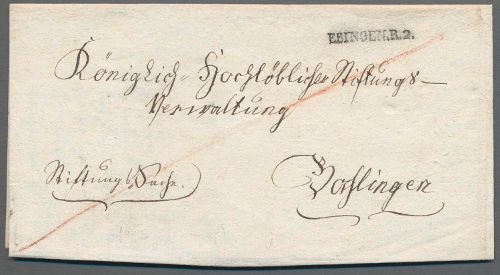 EBINGEN.R.2.
Königlich-Hochlöblicher Stiftungs-
Verwaltung
Stiftungs Sache.
Bahlingen